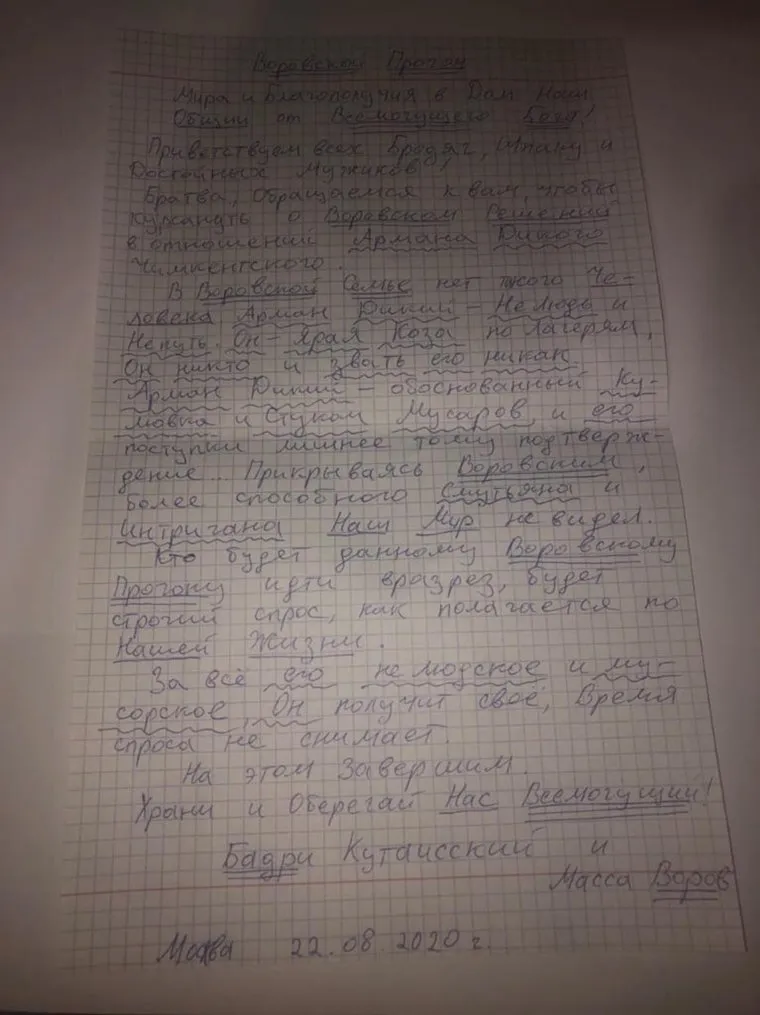 Воровской Прогон
Мира и Благополучия в Дом Наш
Общий от Всемогущего Бога!
Приветствуем всех Бродяг, Шпану и
Достойных Мужиков!
Братва, обращаемся к вам, чтобы
курсануть о Воровском Решений
в отношений Армана Дикого
Чимкентского.
В Воровской Семье нет такого Че-
ловека Арман Дикий – Нелюдь и
Непуть. Он – Ярая Коза по Лагерям,
Он никто и звать его никак.
Арман Дикий – обоснованный Ку-
мовка и Стукач Мусаров, и его
поступки лишнее тому подтверж-
дение.. Прикрываясь Воровским,
более способного Смутьяна и
Интригана Наш Мир не видел.
Кто будет данному Воровскому
Прогону идти вразрез, будет
строгий спрос, как полагается по
Нашей Жизни.
За всё его не людское и му-
сорское, Он получит своё, Время
спроса не снимает.
На этом Завершим.
Храни и Оберегай Нас Всемогущий!
Бадри Кутаисский и
Масса Воров
22.08.2020 г.